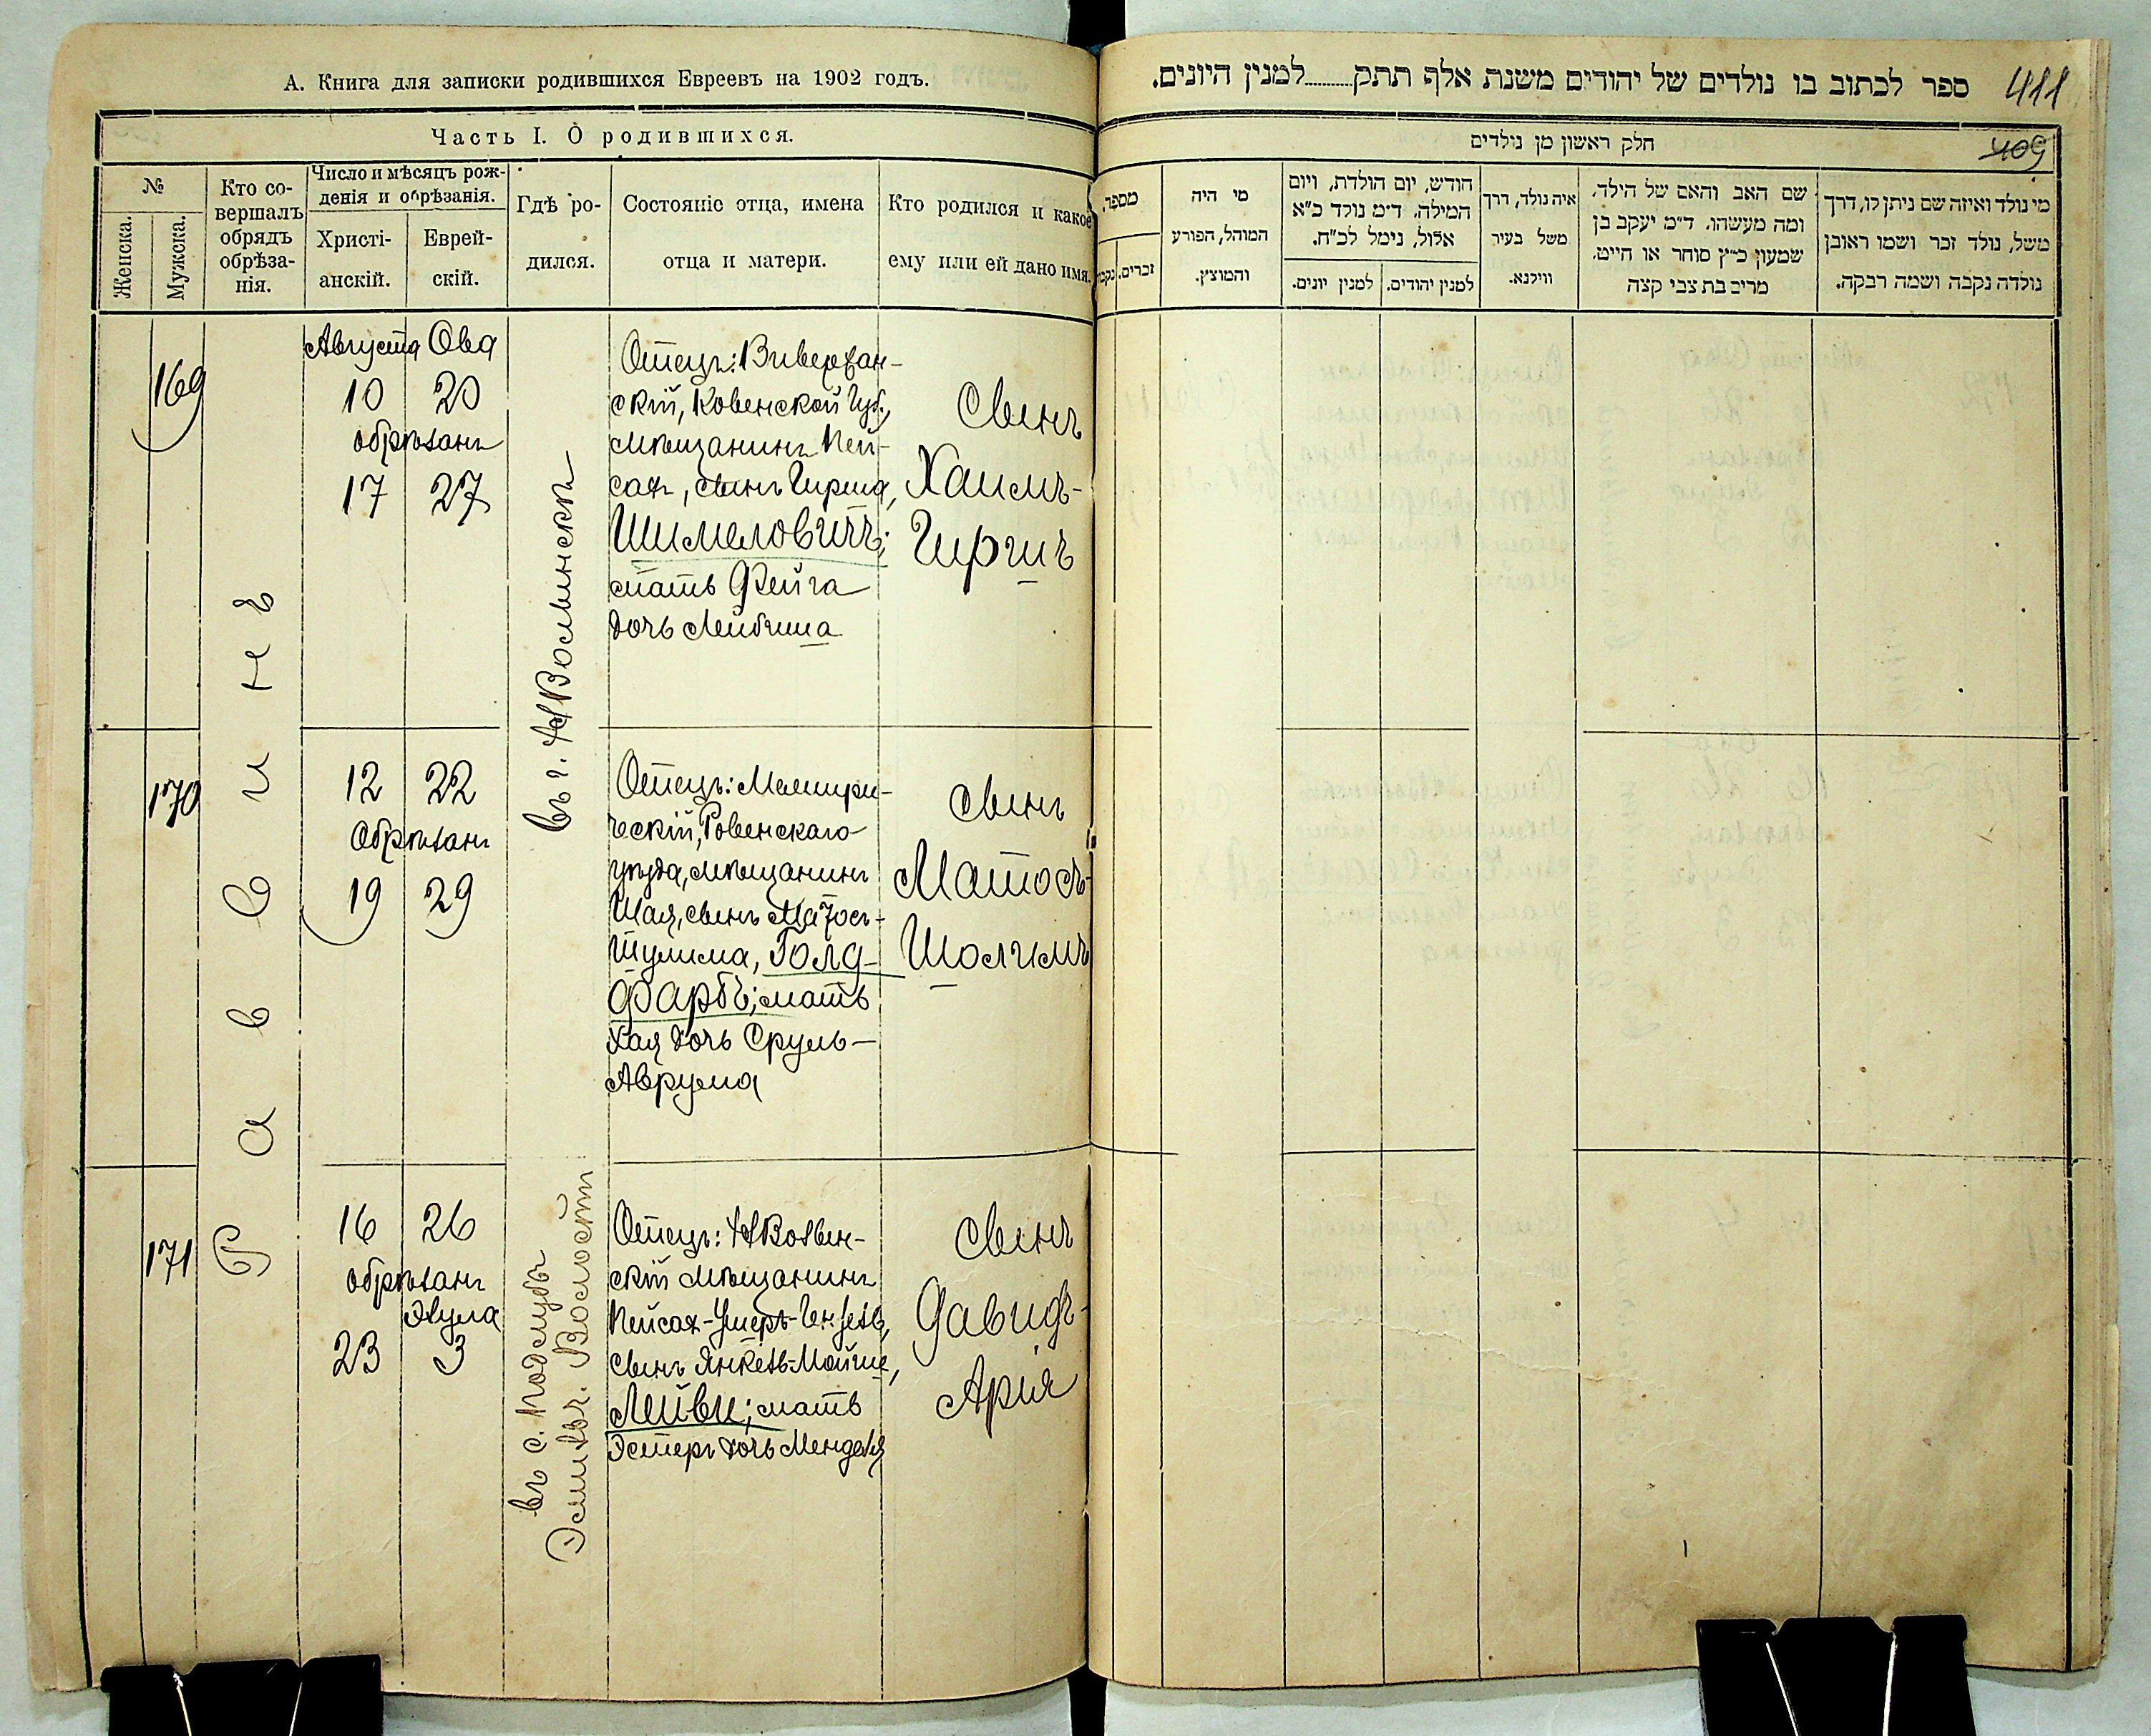 А. Книга для записки родившихся Евреевъ на 1902 годъ.
Часть I. О родившихся.
№
Женска.
Мужска.
Кто со-
вершалъ
обрядъ
обрѣза-
нія.
Число и мѣсяцъ рож-
денія и обрѣзанія.
Христі-
анскій.
Еврей-
скій.
Гдѣ ро-
дился.
Состояніе отца, имена
отца и матери.
Кто родился и какое
ему или ей дано имя.
169
Августа Ова
10 20
обрѣзанъ
17 27
въ г. НВолынскѣ
Отецъ:
скій, Ковенской Губ.,
мѣщанинъ Пей-
сах, сынъ Гирша,
Шимеловичъ;
мать Фейга
дочь Лейбиша
Сынъ
Хаимъ-
Гиршъ
170
12 22
Обрѣзанъ
19 29
Отецъ: Межири-
ческій, Ровенскаго
уѣзда, мѣщанинъ
Шая, сынъ Матос-
Шулима, Голд-
Фарбъ; мать
Хая дочь Сруль-
Аврума
Сынъ
Матосъ-
Шолимъ
171
16 26
обрѣзанъ
Элула
23 3
въ с. Подлубы
Эмильч. Волости
Отецъ: НВолын-
скій мѣщанинъ
Пейсах-Ушеръ-Гензель,
сынъ Янкель-Мойше,
Лейви; мать
Эстеръ дочь Менделя
Сынъ
Давидъ-
Арія
Раввинъ
ספר לכתוב בו נולדים של יהודים משנת אלף תתק........למנין היונים.
411
חלק ראשון מן נולדים
409
מספר.
זכרים.
נקבות
מי היה
המוהל, הפורע
והמוצץ.
חודש, יום הולדת, ויום
המילה. ד״מ נולד כ״א
אלול, נימל לכ״ח.
למנין יונים.
למנין יהודים.
איה נולד, דרך
משל בעיר
ווילנא.
שם האב והאם של הילד.
ומה מעשהו. ד״מ יעקב בן
שמעון כ״ץ סוחר או חייט.
מרים בת צבי קצה
מי נולד ואיזה שם ניתן לו, דרך
משל, נולד זכר ושמו ראובן
נולדה נקבה ושמה רבקה.